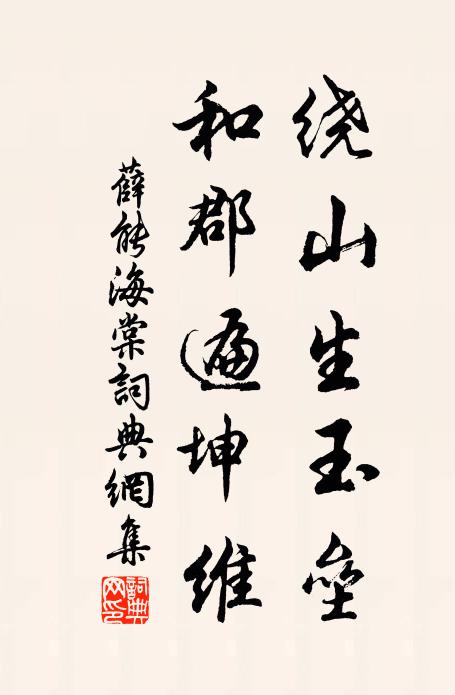 绕山生玉垒
和郡遍坤维
薛能海棠詞典網集
詞典网印